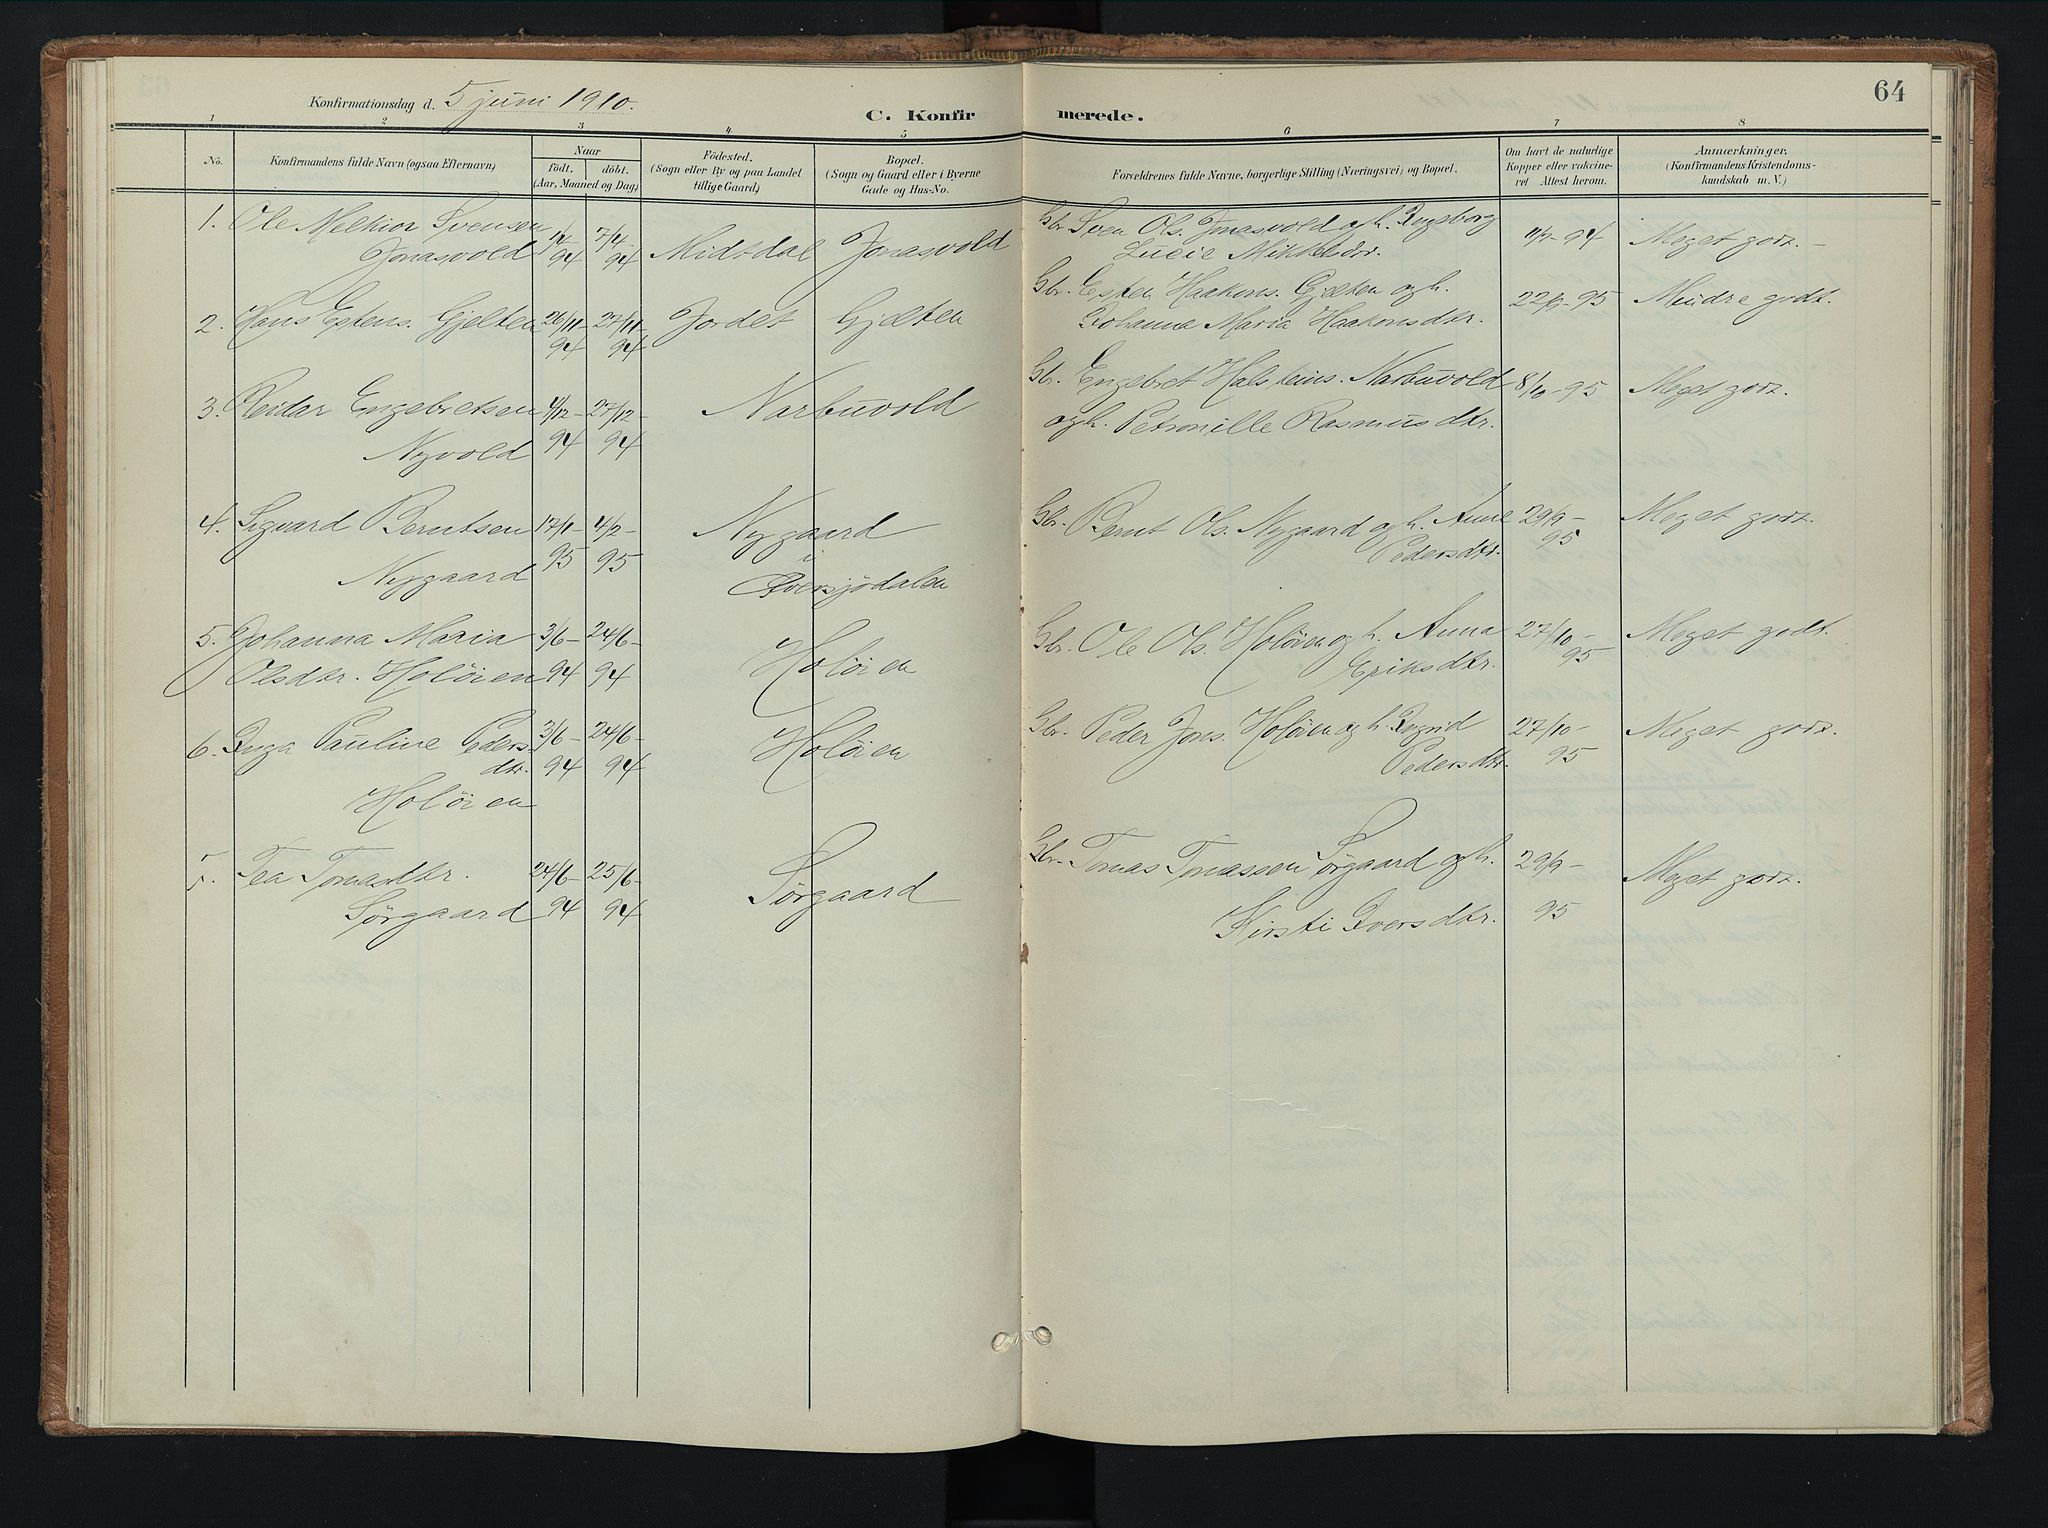 64
Konfirmationsdag d. 5 juni 1910.
C. Konfirmerede.
1 2 3 4 5 6 7 8
No.
Konfirmandens fulde Navn (ogsaa Efternavn)
Naar
födt. döbt.
(Aar, Maaned og Dag)
Födested.
(Sogn eller By og paa Landet
tillige Gaard)
Bopæl.
(Sogn og Gaard eller i Byerne
Gade og Hus-No.
Forældrenes fulde Navne, borgerlige Stilling (Næringsvei) og Bopæl.
Om havt de naturlige
Kopper eller vakcine-
ret Attest herom.
Anmærkninger,
(Konfirmandens Kristendoms-
kundskab m. V.)
1. Ole Melkior Svensen 7/4- Gbr. Sven Ols. Jonasvold og h. Ingeborg
Jonasvold 94 94 Midtdal Jonasvold Lucie Mikkelsdtr. 94 Meget godt.
2. Hans Estens. Gjelten 26/11- 27/11- Jordet Gjelten Gbr. Esten Haakons. Gjelten og h. 22/9-95 Mindre godt.
94 94 Johanna Maria Haakonsdtr.
3. Reidar Engebretsen 4/12- 27/12- Narbuvold Gbr. Engebret Halsteins. Narbuvold 8/10-95 Meget godt.
Nyvold 94 94 og h. Petronille Rasmusdtr.
4. Sigvard Berntsen 17/1- 4/2- Nygaard Gbr. Bernt Ols. Nygaard og h. Anne 29/9- Meget godt.
Nygaard 95 95 i Pedersdtr. 95
Øversjødalen
5. Johanna Maria 3/6- 24/6- Holøien Gbr. Ole Ols. Holøien og h. Anna 27/10- Meget godt.
Olsdtr. Holøien 94 94 Eriksdtr. 95
6. Inga Pauline Peders- 3/6- 24/6- Holøien Gbr. Peder Jons. Holøien og h. Ingrid 27/10- Meget godt.
dtr. 94 94 Pedersdtr. 95
Holøien
Tea Tomasdtr. 24/6- 25/6- Sørgaard Gbr. Tomas Tomassen Sørgaard og h. 29/9- Meget godt.
Sørgaard 94 94 Kirsti Iversdtr. 95